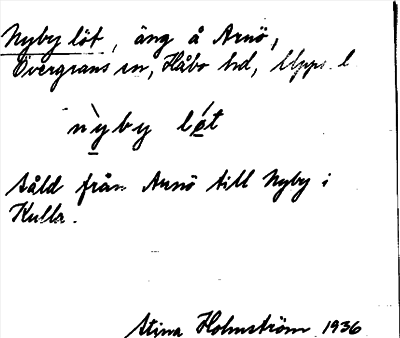 Nyby löt, äng å Arnö,
Övergrans sn, Håbo hd, Upps. l.
nỳby lö́t
Såld från Arnö till Nyby i
Kulla.
Stina Holmström 1936